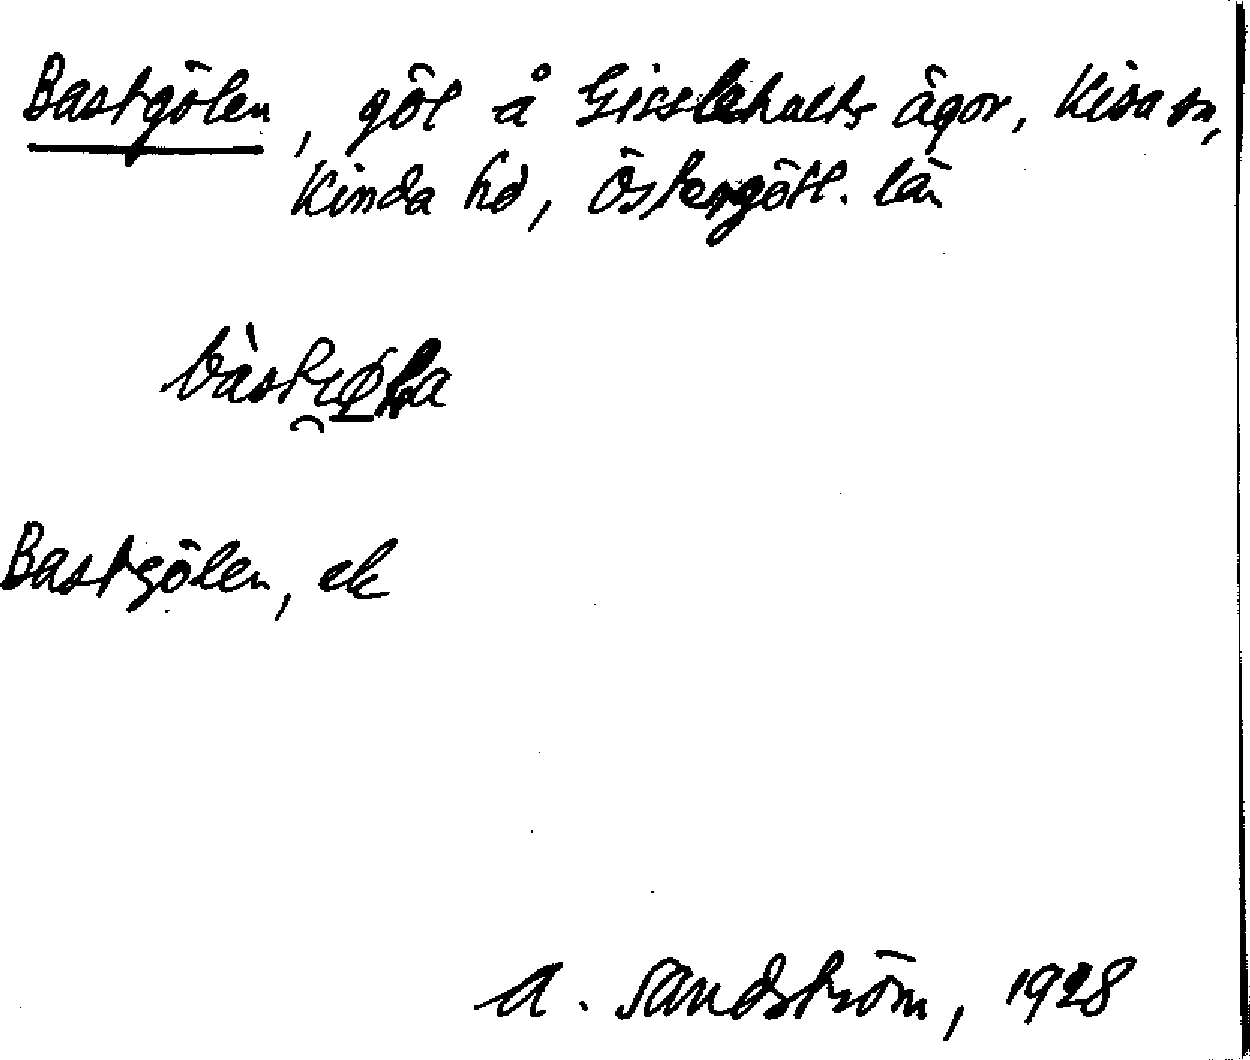 Bastgölen, göl å Gisslehults ägor, Kisa sn,
Kinda hd, Östergötl. län
Bastgölen, ek
A. Sandström, 1928